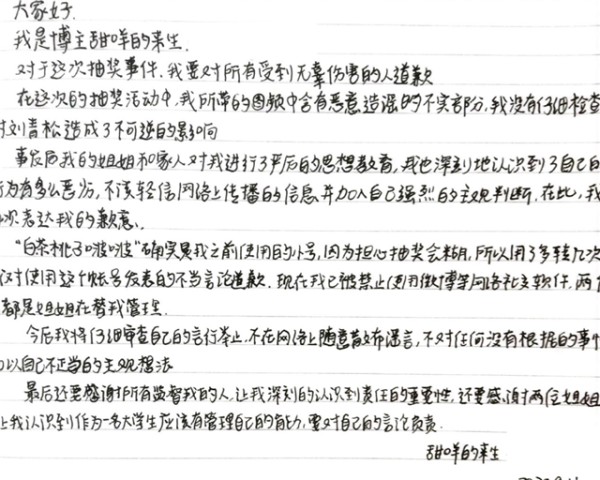 大家好.
我是博主甜咩的来生.
对于这次抽奖事件,我要对所有受到无辜伤害的人道歉
在这次的抽奖活动中,我所带的图频中含有恶意造谣的不实部分,我没有仔细检查
对刘青松造成了不可逆的影响
事发后我的姐姐和家人对我进行了严厉的思想教育,我也深刻地认识到了自己的
行为有多么恶劣,不该轻信网络上传播的信息并加入自己强烈的主观判断,在此,我
次表达我的歉意.
“白茶桃子啵啵”确实是我之前使用的小号,因为担心抽奖会糊,所以用了多转几次
对使用这个账号发表的不当言论道歉.现在我已被禁止使用微博等网络社交软件,两
都是姐姐在替我管理.
今后我将仔细审查自己的言行举止,不在网络上随意散布谣言,不对任何没有根据的事
加以自己不正当的主观想法
最后还要感谢所有监督我的人,让我深刻的认识到责任的重要性,还要感谢两位姐姐
让我认识到作为一名大学生应该有管理自己的能力,要对自己的言论负责.
甜咩的来生